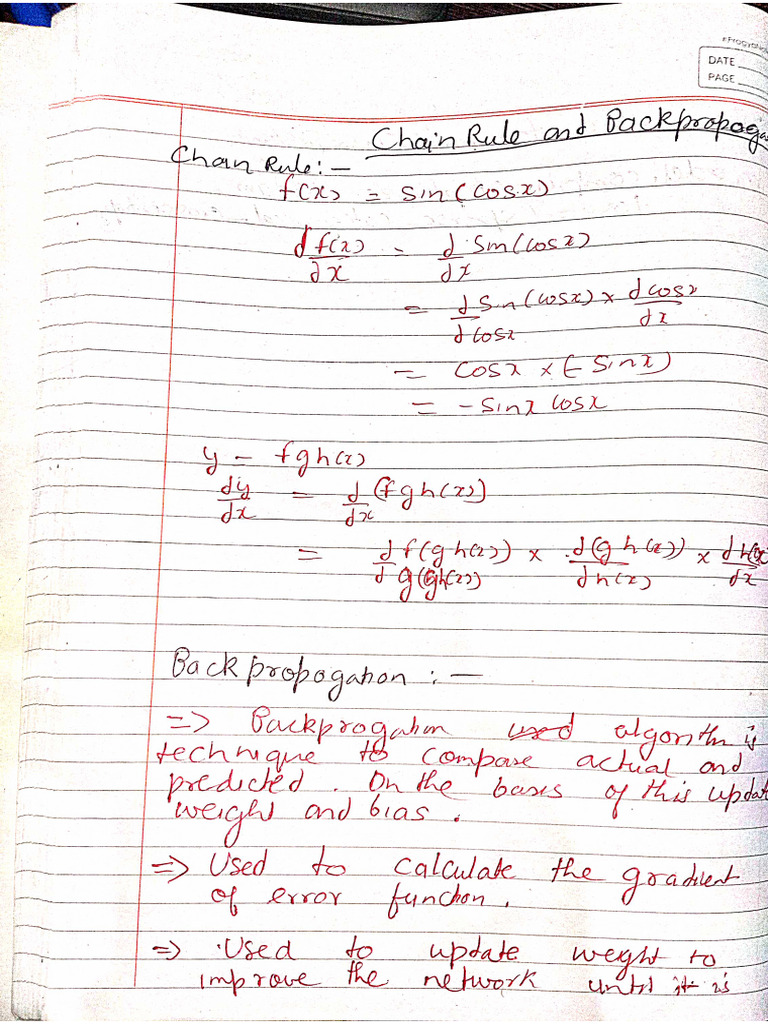 DATE
PAGE
Chain Rule and Backpropoga
Chan Rule:-
f(x) = sin(cosx)
df(x)/dx = d/dx sin(cosx)
= d/dcosx sin(cosx) × dcosx/dx
= cosx × (-sinx)
= -sinx cosx
y = fgh(x)
dy/dx = d/dx (fgh(x))
= df(gh(x))/dg(gh(x)) × d(gh(x))/dh(x) × dh(x/dx
Backpropogation :-
=> Backprogation used algorithm is
technique to compare actual and
predicted. On the basis of this updat
weight and bias.
=> Used to calculate the gradient
of error function.
=> Used to update weight to
improve the network until it is